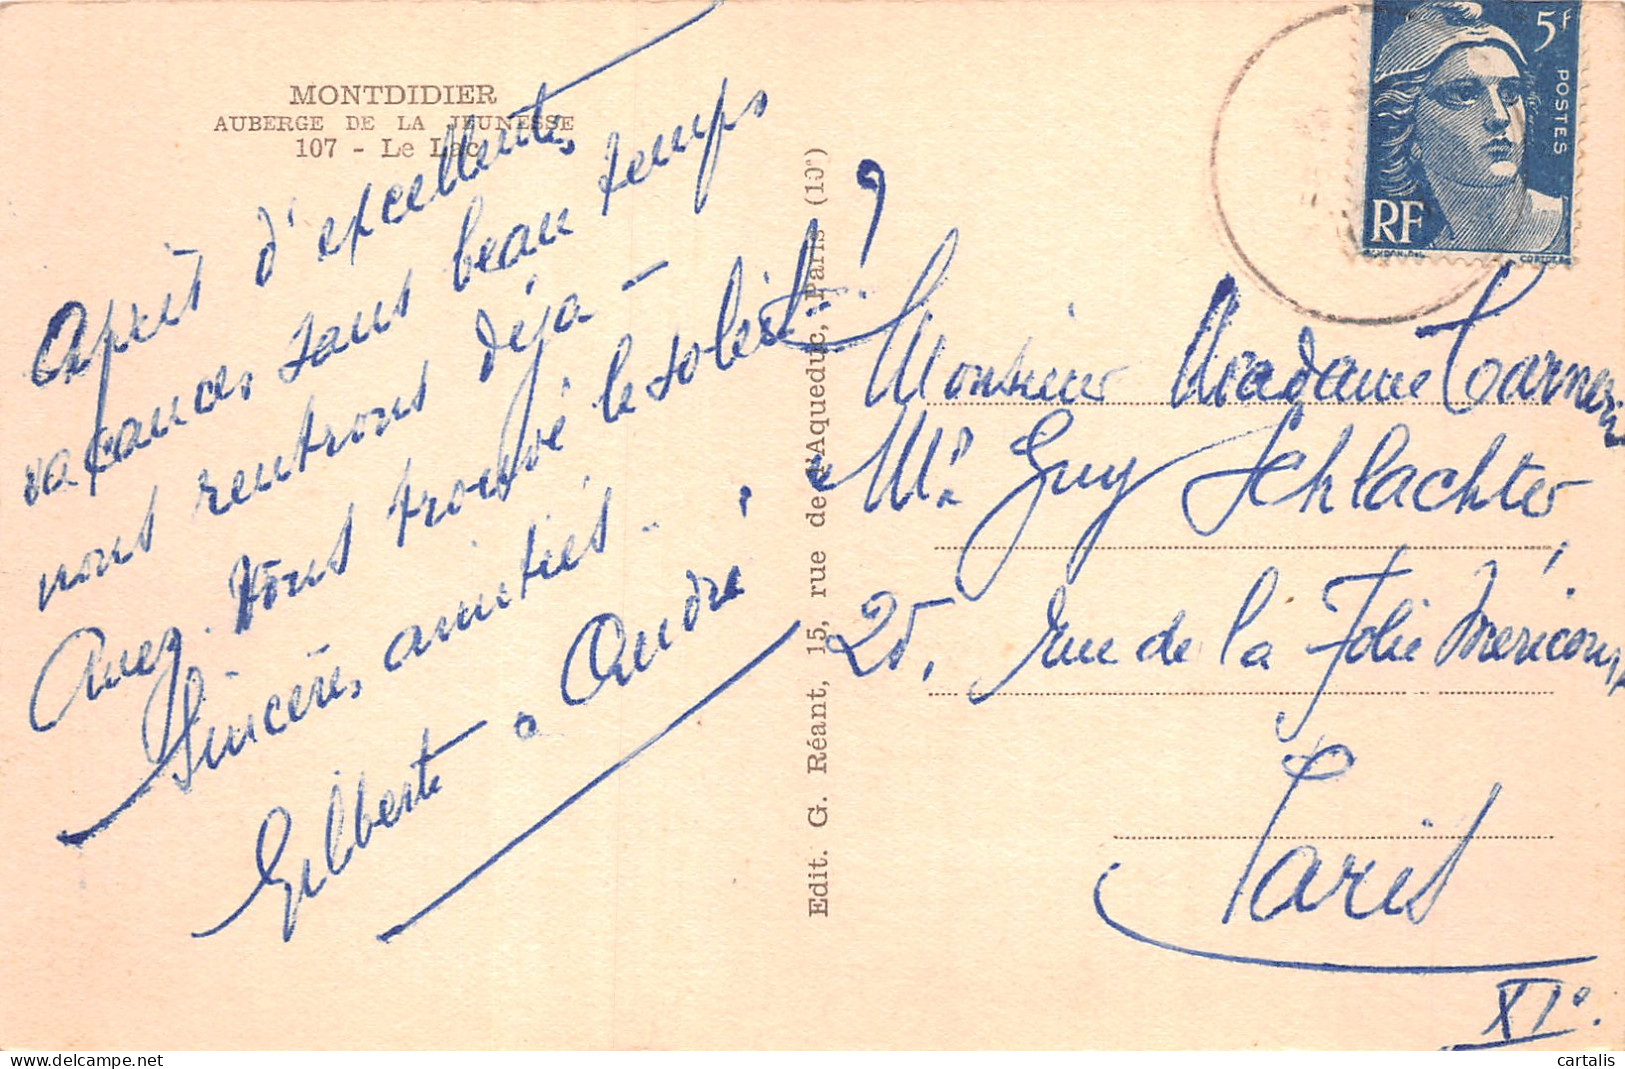 MONTDIDIER
AUBERGE DE LA JEUNESSE
107 - Le Lac
Après d'excellentes
vacances sans beau temps
nous rentrons déjà -
Avez-vous trouvé le soleil ?
Sincères amitiés..
Gilberte & André
Edit. G. Réant, 15, rue de l'Aqueduc, Paris (10e)
5F
POSTES
RF
Monsieur Madame
& Mr Guy Schlachter
25, rue de la Folie Méricourt
Paris
XIe.
cartalis